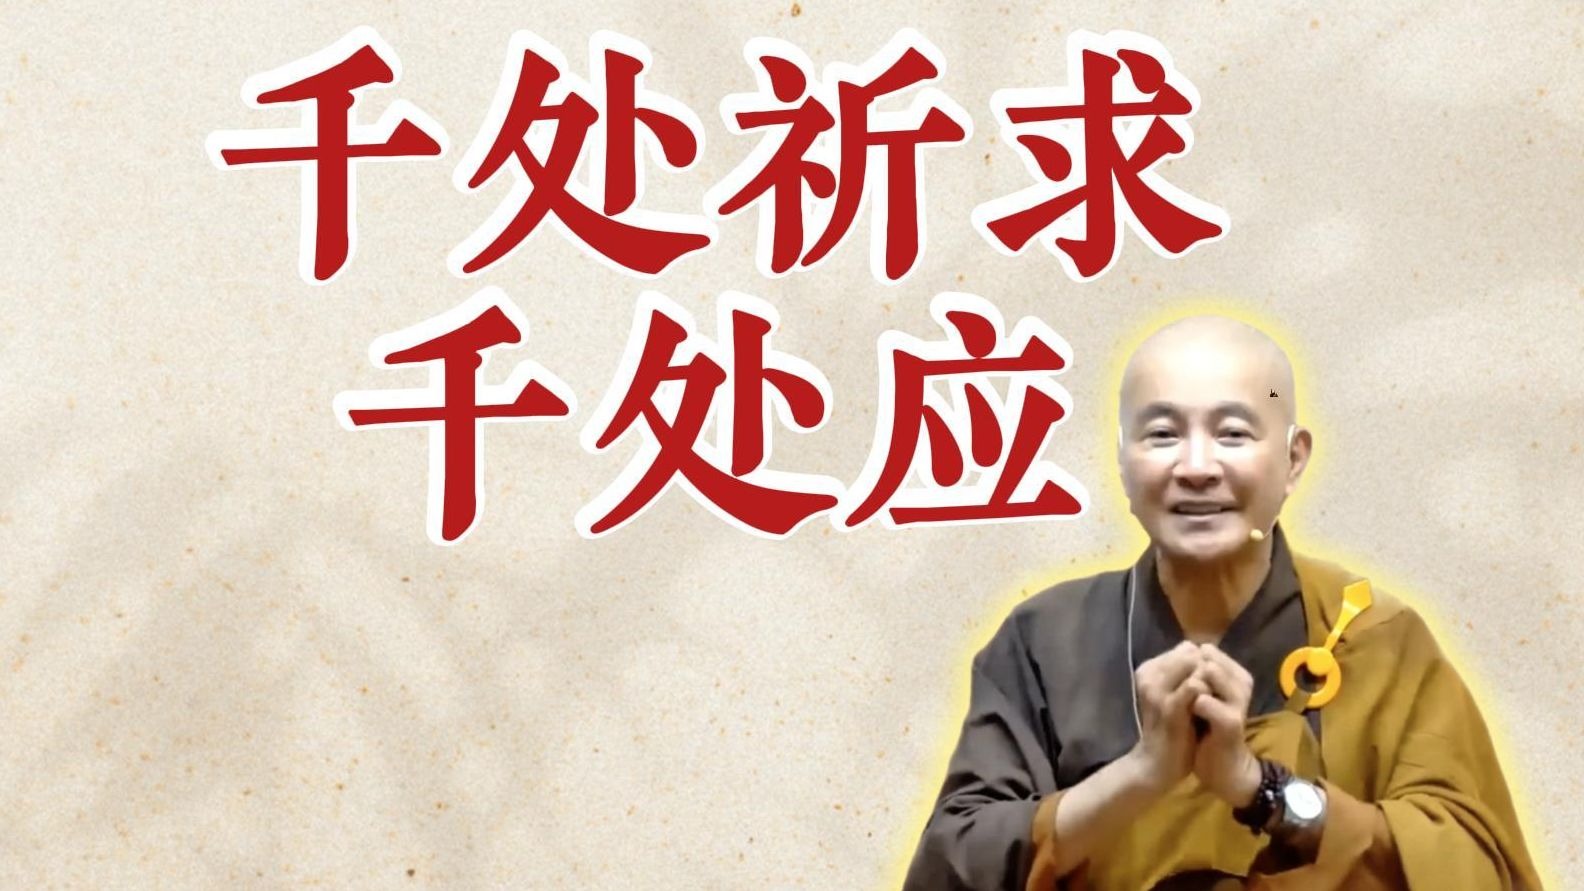 千处祈求
千处应